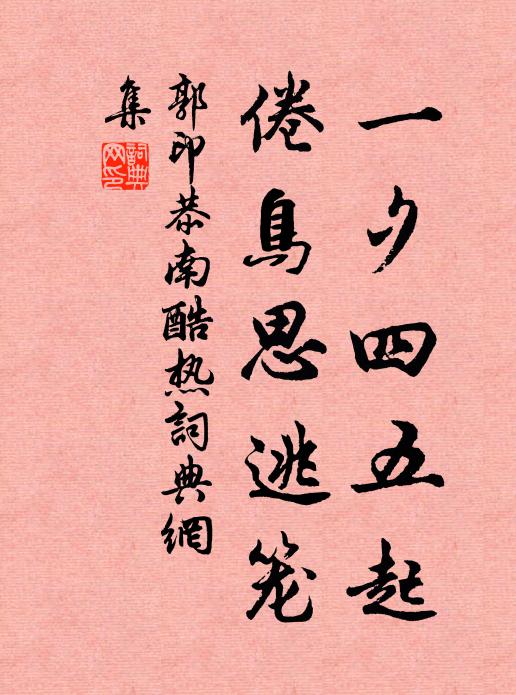 一夕四五起
倦鳥思逃笼
郭印恭南酷热詞典網
集
詞典網印